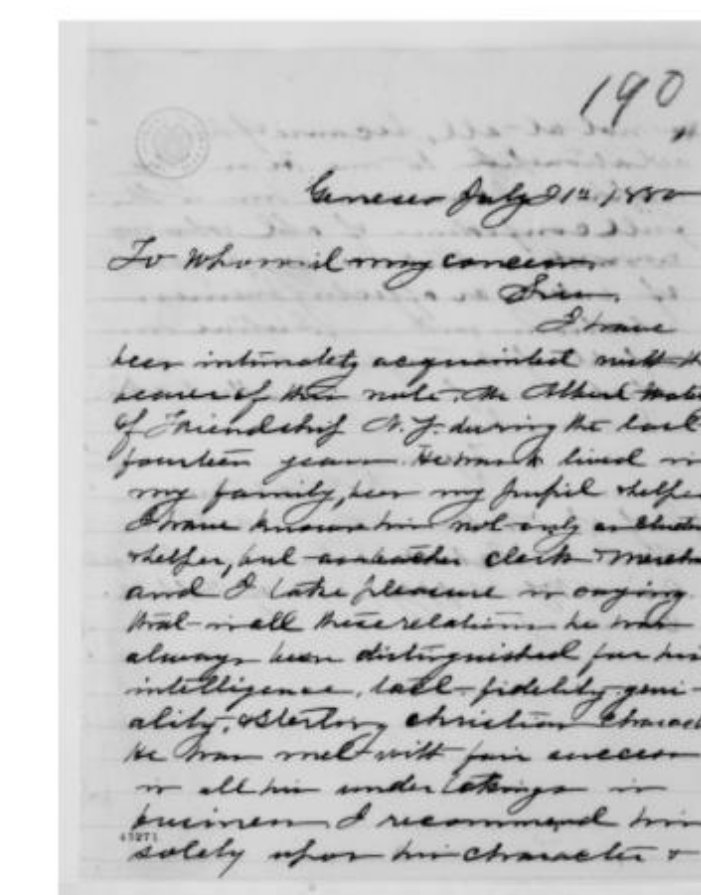 190
Geneseo July 21st 1880
To Whom it may concern
Sir,
I have
been intimately acquainted with th
bearer of this note. Mr Albert
of Friendship N. Y. during the last
fourteen years. He has lived in
my family, been my pupil & helpe
I have known him not only as
& helper, but as teacher clerk & merch
and I take pleasure in saying
that in all these relations he has
always been distinguished for his
intelligence, tact, fidelity, geni-
ality, & sterling christian charact
He has met with fair success
in all his undertakings in
business. I recommend him
43271
solely upon his character &